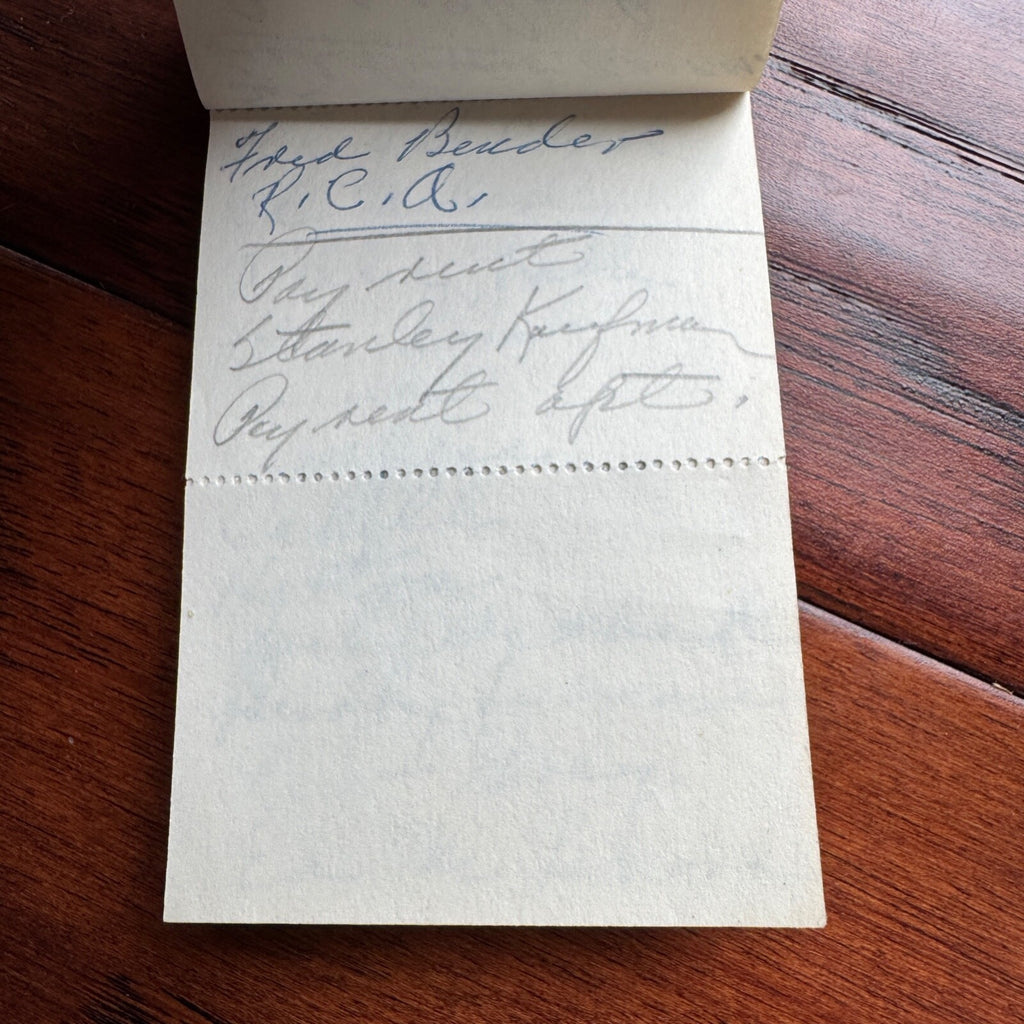 Fred Bender
R.C.A.
Pay rent
Stanley Kaufman
Pay rent apt.